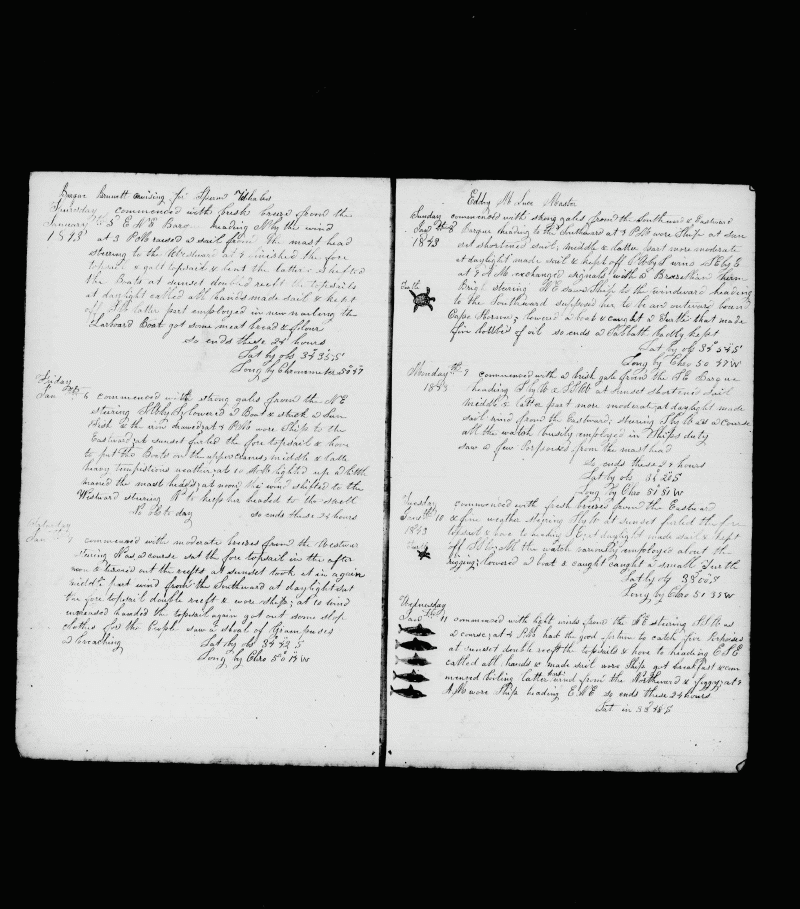 Barque Bennett cruising for Sperm Whales
Thursday commenced with fresh breeze from the
January 5 E N E Barque heading N by the wind
1843 at 3 PM raised a sail from the mast head
steering to the Westward at 4 finished the fore
topsail & got topsail & bent the latter shifted
the Boats at sunset double reeft the topsails
at daylight called all hands made sail & kept
off latter part employed in new
Larboard Boat got some meat bread & flour
so ends these 24 hours
Lat by obs 34 35 S
Long by Chronometer 50 47
Friday
Jan 6 commenced with strong gales from the NE
steering lowered a Boat & struck a Sun
Fish & the iron drawed at 4 PM wore Ship to the
Eastward at sunset furled the fore topsail & hove
to put the Boats on the upper cranes middle & latter
heavy tempestious weather at 10 AM lighted up
maned the mast heads at noon the wind shifted to the
Westward steering headed to the swell
No Ob to day so ends these 24 hours
Saturday
Jan 7 commenced with moderate breezes from the Westward
steering N as a course sat the fore topsail in the after
noon & turned out the reefts at sunset took it in again
middle part wind from the Southward at daylight sat
the fore topsail double reeft & wore ship at 10 wind
increased handed the topsail again got out some slop
clothes for the People saw a shoal of Grampuses
a breaching Lat by obs 34 42 S
Long by Chro 50 14 W
Eddy M Luce Master
Sunday commenced with strong gales from the Southward & Eastward
Jan 8 Barque heading to the Southward at 3 PM wore Ship at sun
1843 set shortened sail middle & latter part more moderate
at daylight made sail & kept off N by E wind SE by E
at 7 AM exchanged signals with a Brazeilian Herm
Brigh steering NE saw a Ship to the windward heading
to the Southward supposed her to be an outward bound
Cape Horner lowered a boat & caught a Turtle that made
Turtle
five bottles of oil so ends a Sabbath badly kept
Lat by obs 34 54 S
Long by Chro 50 47 W
Monday 9 commenced with a brisk gale from the SE Barque
1843 heading S by W & SSW at sunset shortened sail
middle & latter part more moderate at daylight made
sail wind from the Eastward steering S by W as a course
all the watch busily employed in Ships duty
saw a few Porpoises from the mast head
so ends these 24 hours
Lat by obs
Long by Chro 51 51 W
Tuesday commenced with fresh breezes from the Eastward
Jan 10 & fine weather steering S by W at sunset furled the fore
1843 topsail & hove to heading at daylight made sail & kept
off S by W all the watch variously employed about the
Turtle
rigging lowered a boat & caught caught a small Turtle
Lat by obs 38 00 S
Long by Chro 51 39 W
Wednesday
Jan 11 commenced with light winds from the NE steering SSW as
a course at 4 PM had the good fortune to catch five Porpoises
at sunset double reeft the topsails & hove to heading ESE
called all hands & made sail wore Ship got breakfast & com
menced boiling latter part wind from the Northward & foggy at 9
AM wore Ship heading ENE so ends these 24 hours
Lat in 38 48 S